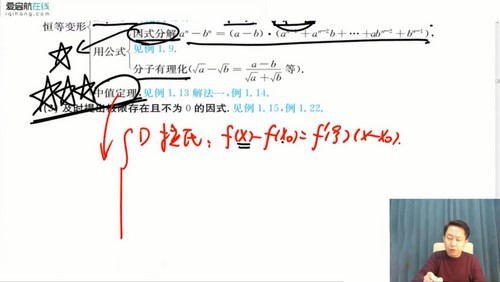 爱启航在线
iqihang.com
恒等变形
因式分解 aⁿ-bⁿ=(a-b)·(aⁿ⁻¹+aⁿ⁻²b+…+abⁿ⁻²+bⁿ⁻¹),
用公式
见例 1.9.
分子有理化(√a-√b=(a-b)/(√a+√b)等).
中值定理.见例 1.13 解法一,例 1.14.
及时提出极限存在且不为 0 的因式.见例 1.15,例 1.22.
① 拉氏: f(x)-f(x₀)=f'(ξ)(x-x₀).